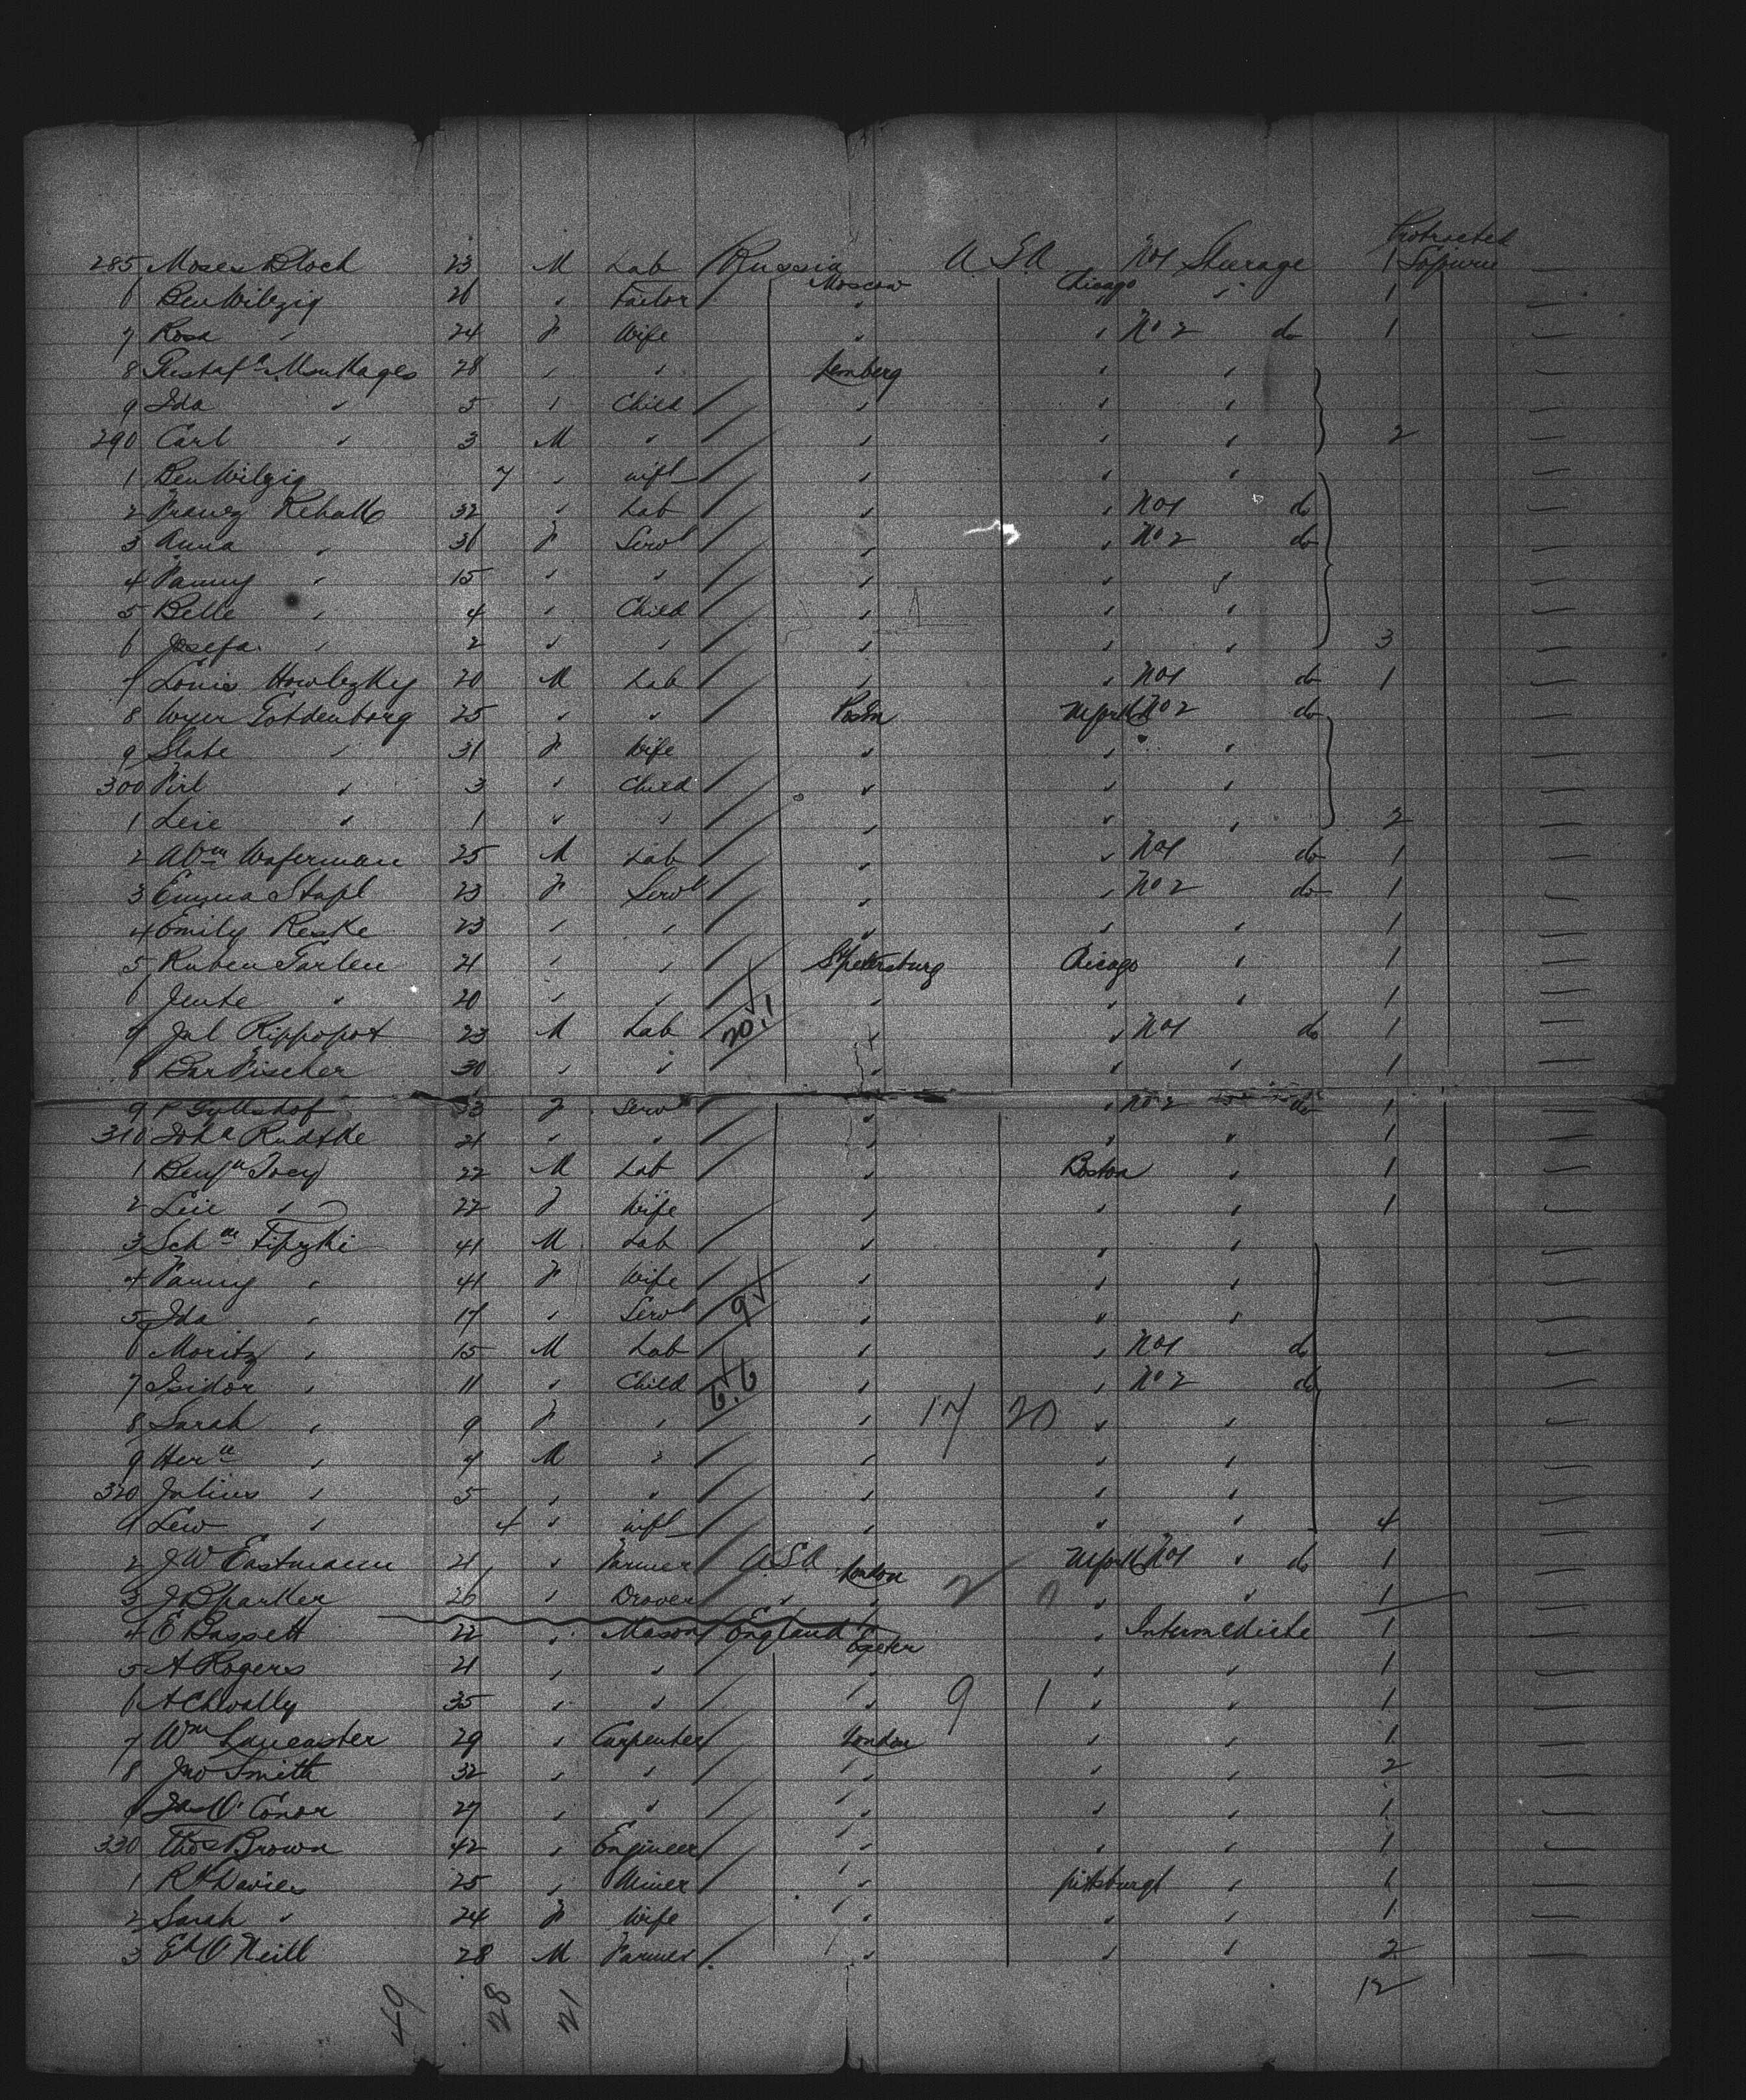 Protracted
285 Moses Bloch 23 M Lab Russia Moscow U.S.A Chicago No 1 Steerage 1
6 Ben Wilezig 26 " Tailor " " " 1
7 Rosa " 24 F Wife " " No 2 do 1
8 28 " " Lemberg " "
9 Ida " 5 " Child " " "
290 Carl " 3 M " " " " 2
1 Ben Wilezig 7 " inft " " "
2 Franz 32 " Lab " " No 1 do
3 Anna " 31 F Servt " " No 2 do
4 Fanny " 15 " " " " "
5 Belle " 4 " Child " " "
6 Josefa " 2 " " " " " 3
7 Louis 20 M Lab " " No 1 do 1
8 25 " " Posen No 2 do
9 Slate " 31 F Wife " " "
300 Pirl " 3 " Child " " "
1 Leie " 1 " " " " " 2
2 Abm Waferman 25 M Lab " " No 1 do 1
3 Emma Stapl 23 F Servt " " No 2 do 1
4 Emily Reske 23 " " " " " 1
5 Ruben Tarlen 21 " " St Petersburg Chicago " 1
6 Jente " 20 " " " " " 1
7 Jul Rippopot 23 M Lab 20.1 " " No 1 do 1
8 Ber Fischer 30 " " " " " 1
9 33 F Servt " " No 2 do 1
310 Joha Rudtke 21 " " " " " 1
1 Benjn 22 M Lab " Boston " 1
2 Leie " 22 F Wife " " " 1
3 Schm 41 M Lab " " "
4 Fanny " 41 F Wife " " "
5 Ida " 17 " Servt 9 " " "
6 Moritz " 15 M Lab " " No 1 do
7 Isidor " 11 " Child 6.6 " " No 2 do
8 Sarah " 9 F " " 17 20 " "
9 Hern " 7 M " " " "
320 Julius " 5 " " " " "
1 Lew " 4 " inft " " " 4
2 J W Eastmann 21 " Farmer U.S.A London No 1 " do 1
3 J B Parker 26 " Drover " " 2 0 " " 1
4 E Bassett 22 " Mason England Exeter " Intermediate 1
5 A Rogers 21 " " " " " 1
6 35 " " " 9 1 " " 1
7 Wm Lancaster 29 " Carpenter " London " " 1
8 Jno Smith 32 " " " " " " 2
9 Jas O'Conor 27 " " " " " " 1
330 Thos Brown 42 " Engineer " " " " 1
1 Rd Davies 25 " Miner " " Pittsburgh " 1
2 Sarah " 24 F Wife " " " " 1
3 Ed O'Neill 28 M Farmer " " " " 2
12
49 28 21